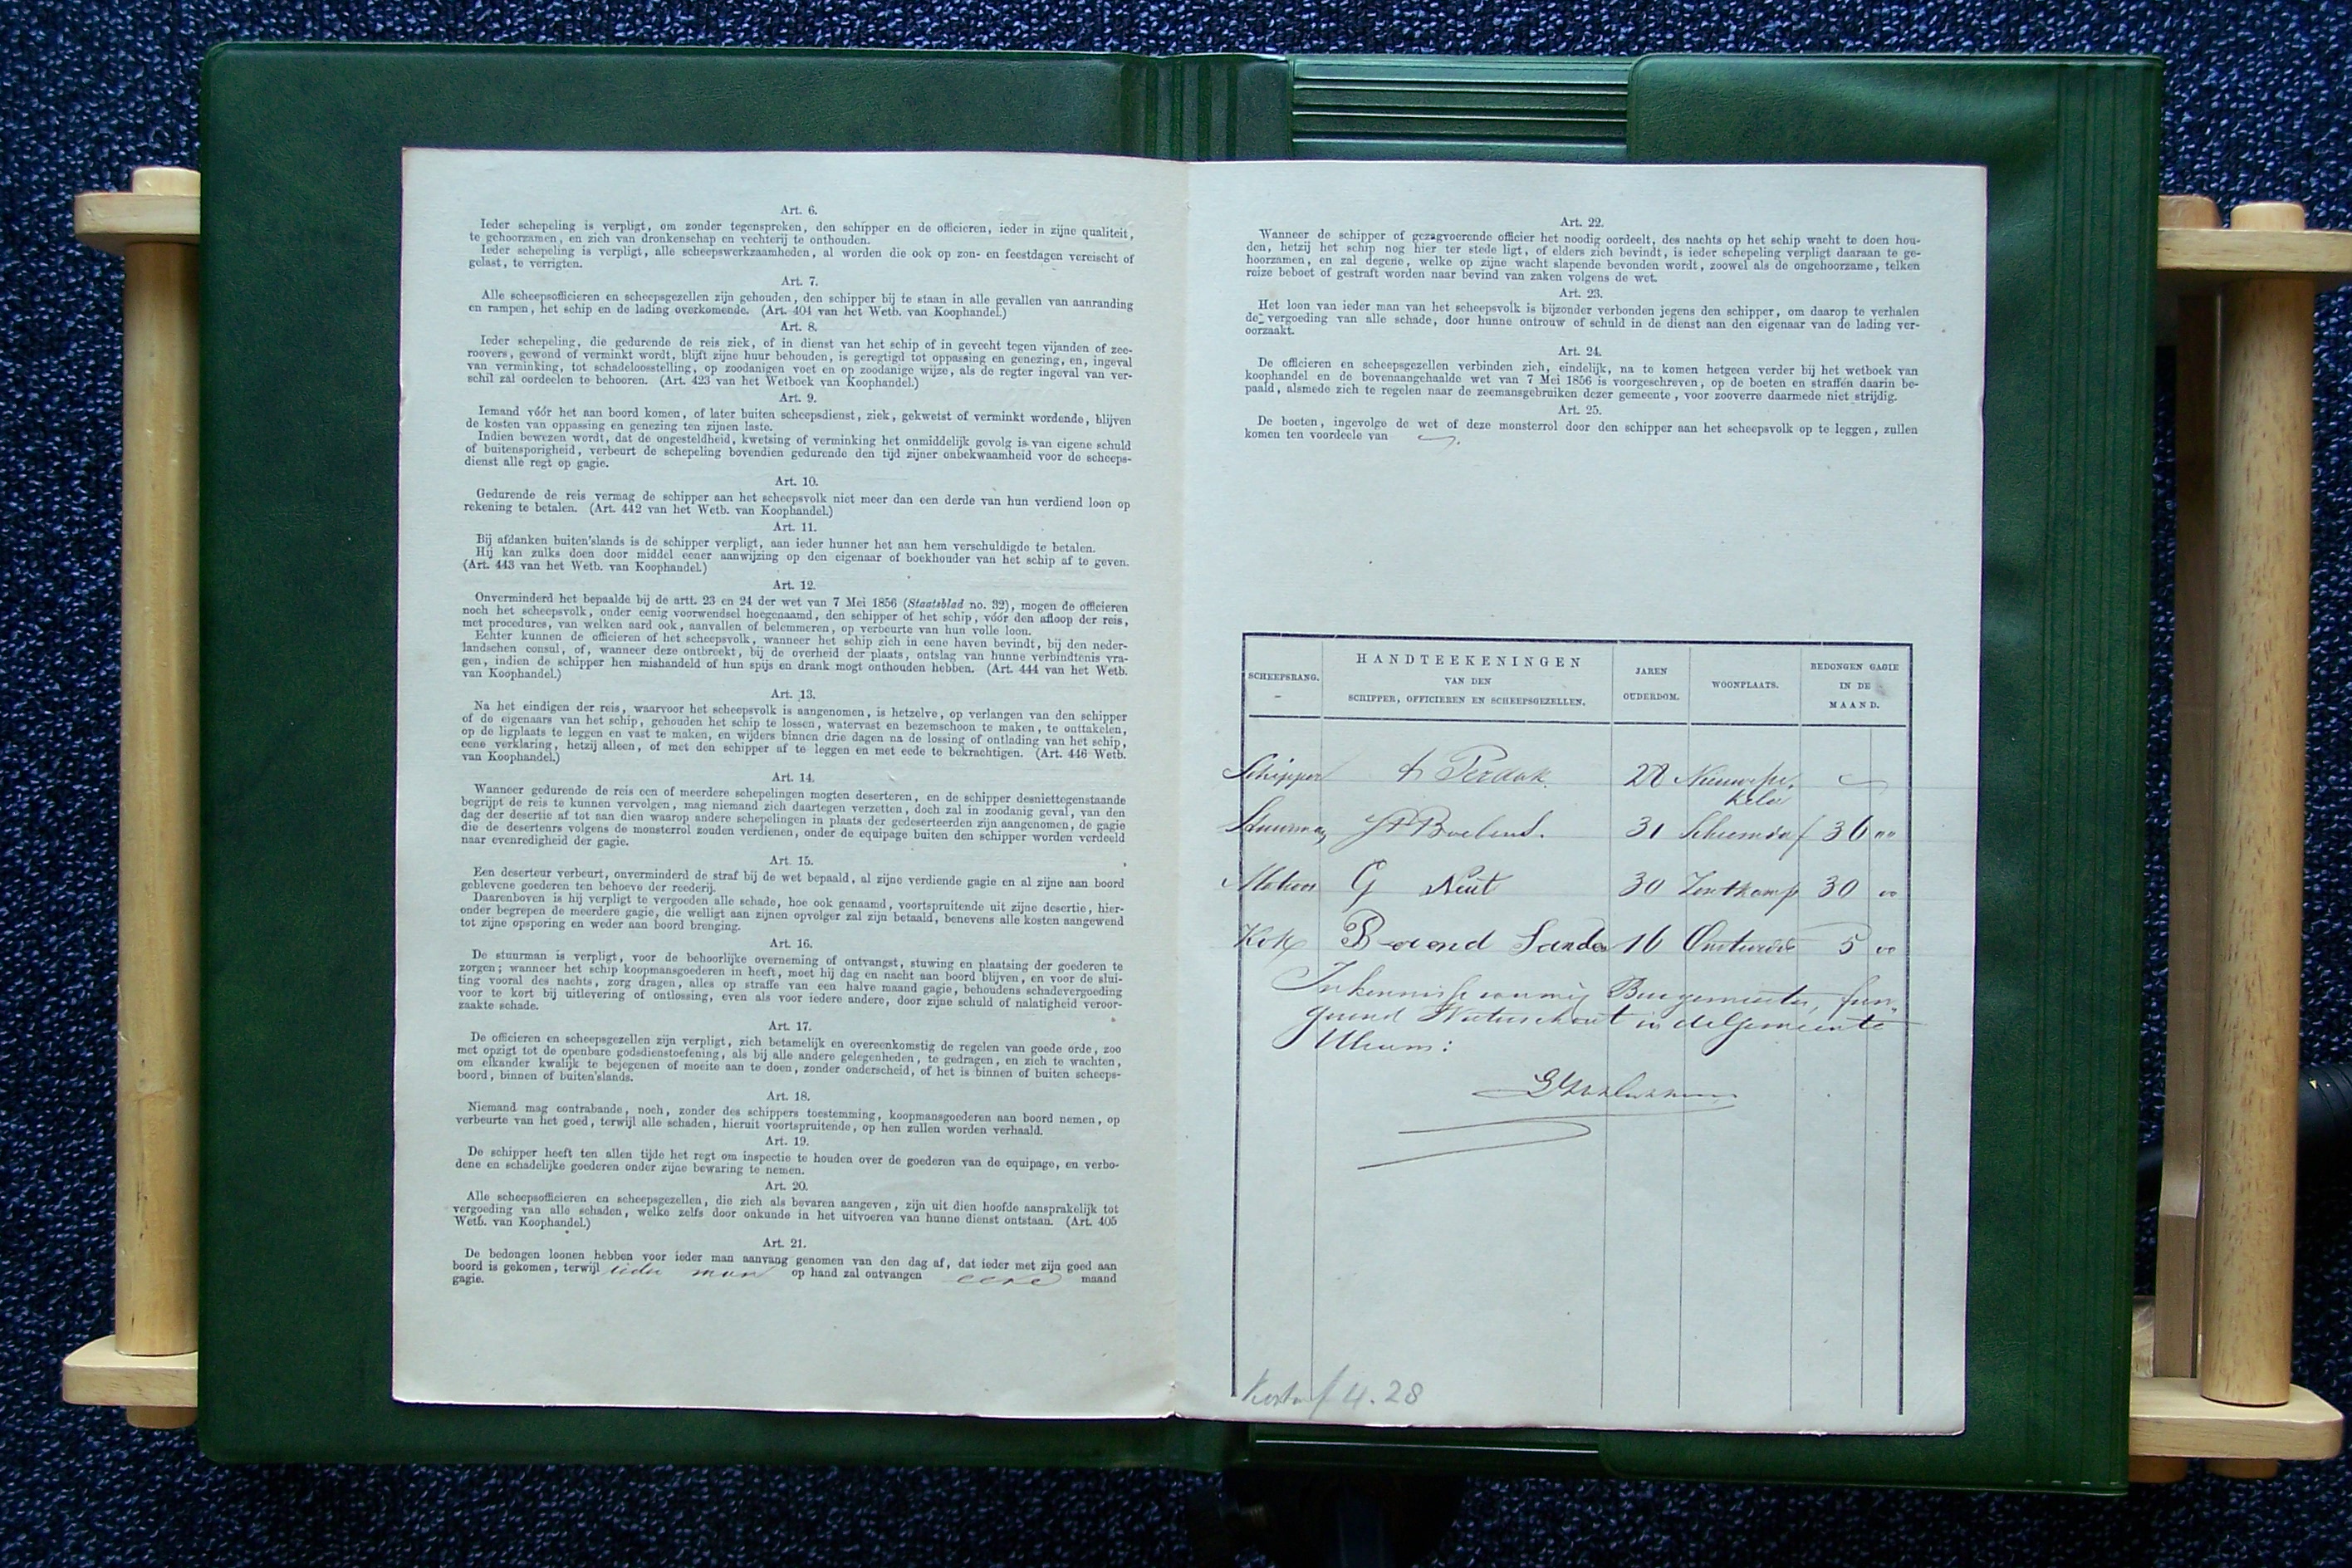 Art. 6.
Ieder schepeling is verpligt, om zonder tegenspreken, den schipper en de officieren, ieder in zijne qualiteit,
te gehoorzamen, en zich van dronkenschap en vechterij te onthouden.
Ieder schepeling is verpligt, alle scheepswerkzaamheden, al worden die ook op zon- en feestdagen vereischt of
gelast, te verrigten.
Art. 7.
Alle scheepsofficieren en scheepsgezellen zijn gehouden, den schipper bij te staan in alle gevallen van aanranding
en rampen, het schip en de lading overkomende. (Art. 404 van het Wetb. van Koophandel.)
Art. 8.
Ieder schepeling, die gedurende de reis ziek, of in dienst van het schip of in gevecht tegen vijanden of zee-
roovers, gewond of verminkt wordt, blijft zijne huur behouden, is geregtigd tot oppassing en genezing, en, ingeval
van verminking, tot schadeloosstelling, op zoodanigen voet en op zoodanige wijze, als de regter ingeval van ver-
schil zal oordeelen te behooren. (Art. 423 van het Wetboek van Koophandel.)
Art. 9.
Iemand vóór het aan boord komen, of later buiten scheepsdienst, ziek, gekwetst of verminkt wordende, blijven
de kosten van oppassing en genezing ten zijnen laste.
Indien bewezen wordt, dat de ongesteldheid, kwetsing of verminking het onmiddelijk gevolg is van eigene schuld
of buitensporigheid, verbeurt de schepeling bovendien gedurende den tijd zijner onbekwaamheid voor de scheeps-
dienst alle regt op gagie.
Art. 10.
Gedurende de reis vermag de schipper aan het scheepsvolk niet meer dan een derde van hun verdiend loon op
rekening te betalen. (Art. 442 van het Wetb. van Koophandel.)
Art. 11.
Bij afdanken buiten'slands is de schipper verpligt, aan ieder hunner het aan hem verschuldigde te betalen.
Hij kan zulks doen door middel eener aanwijzing op den eigenaar of boekhouder van het schip af te geven.
(Art. 443 van het Wetb. van Koophandel.)
Art. 12.
Onverminderd het bepaalde bij de artt. 23 en 24 der wet van 7 Mei 1856 (Staatsblad no. 32), mogen de officieren
noch het scheepsvolk, onder eenig voorwendsel hoegenaamd, den schipper of het schip, vóór den afloop der reis,
met procedures, van welken aard ook, aanvallen of belemmeren, op verbeurte van hun volle loon.
Echter kunnen de officieren of het scheepsvolk, wanneer het schip zich in eene haven bevindt, bij den neder-
landschen consul, of, wanneer deze ontbreekt, bij de overheid der plaats, ontslag van hunne verbindtenis vra-
gen, indien de schipper hen mishandeld of hun spijs en drank mogt onthouden hebben. (Art. 444 van het Wetb.
van Koophandel.)
Art. 13.
Na het eindigen der reis, waarvoor het scheepsvolk is aangenomen, is hetzelve, op verlangen van den schipper
of de eigenaars van het schip, gehouden het schip te lossen, watervast en bezemschoon te maken, te onttakelen,
op de ligplaats te leggen en vast te maken, en wijders binnen drie dagen na de lossing of ontlading van het schip,
eene verklaring, hetzij alleen, of met den schipper af te leggen en met eede te bekrachtigen. (Art. 446 Wetb.
van Koophandel.)
Art. 14.
Wanneer gedurende de reis een of meerdere schepelingen mogten deserteren, en de schipper desniettegenstaande
begrijpt de reis te kunnen vervolgen, mag niemand zich daartegen verzetten, doch zal in zoodanig geval, van den
dag der desertie af tot aan dien waarop andere schepelingen in plaats der gedeserteerden zijn aangenomen, de gagie
die de deserteurs volgens de monsterrol zouden verdienen, onder de equipage buiten den schipper worden verdeeld
naar evenredigheid der gagie.
Art. 15.
Een deserteur verbeurt, onverminderd de straf bij de wet bepaald, al zijne verdiende gagie en al zijne aan boord
geblevene goederen ten behoeve der reederij.
Daarenboven is hij verpligt te vergoeden alle schade, hoe ook genaamd, voortspruitende uit zijne desertie, hier-
onder begrepen de meerdere gagie, die welligt aan zijnen opvolger zal zijn betaald, benevens alle kosten aangewend
tot zijne opsporing en weder aan boord brenging.
Art. 16.
De stuurman is verpligt, voor de behoorlijke overneming of ontvangst, stuwing en plaatsing der goederen te
zorgen; wanneer het schip koopmansgoederen in heeft, moet hij dag en nacht aan boord blijven, en voor de slui-
ting vooral des nachts, zorg dragen, alles op straffe van een halve maand gagie, behoudens schadevergoeding
voor te kort bij uitlevering of ontlossing, even als voor iedere andere, door zijne schuld of nalatigheid veroor-
zaakte schade.
Art. 17.
De officieren en scheepsgezellen zijn verpligt, zich betamelijk en overeenkomstig de regelen van goede orde, zoo
met opzigt tot de openbare godsdienstoefening, als bij alle andere gelegenheden, te gedragen, en zich te wachten,
om elkander kwalijk te bejegenen of moeite aan te doen, zonder onderscheid, of het is binnen of buiten scheeps-
boord, binnen of buiten'slands.
Art. 18.
Niemand mag contrabande, noch, zonder des schippers toestemming, koopmansgoederen aan boord nemen, op
verbeurte van het goed, terwijl alle schaden, hieruit voortspruitende, op hen zullen worden verhaald.
Art. 19.
De schipper heeft ten allen tijde het regt om inspectie te houden over de goederen van de equipage, en verbo-
dene en schadelijke goederen onder zijne bewaring te nemen.
Art. 20.
Alle scheepsofficieren en scheepsgezellen, die zich als bevaren aangeven, zijn uit dien hoofde aansprakelijk tot
vergoeding van alle schaden, welke zelfs door onkunde in het uitvoeren van hunne dienst ontstaan. (Art. 405
Wetb. van Koophandel.)
Art. 21.
De bedongen loonen hebben voor ieder man aanvang genomen van den dag af, dat ieder met zijn goed aan
boord is gekomen, terwijl ieder man op hand zal ontvangen eene maand
gagie.
Art. 22.
Wanneer de schipper of gezagvoerende officier het noodig oordeelt, des nachts op het schip wacht te doen hou-
den, hetzij het schip nog hier ter stede ligt, of elders zich bevindt, is ieder schepeling verpligt daaraan te ge-
hoorzamen, en zal degene, welke op zijne wacht slapende bevonden wordt, zoowel als de ongehoorzame, telken
reize beboet of gestraft worden naar bevind van zaken volgens de wet.
Art. 23.
Het loon van ieder man van het scheepsvolk is bijzonder verbonden jegens den schipper, om daarop te verhalen
de vergoeding van alle schade, door hunne ontrouw of schuld in de dienst aan den eigenaar van de lading ver-
oorzaakt.
Art. 24.
De officieren en scheepsgezellen verbinden zich, eindelijk, na te komen hetgeen verder bij het wetboek van
koophandel en de bovenaangehaalde wet van 7 Mei 1856 is voorgeschreven, op de boeten en straffen daarin be-
paald, alsmede zich te regelen naar de zeemansgebruiken dezer gemeente, voor zooverre daarmede niet strijdig.
Art. 25.
De boeten, ingevolge de wet of deze monsterrol door den schipper aan het scheepsvolk op te leggen, zullen
komen ten voordeele van
SCHEEPSRANG. HANDTEEKENINGEN VAN DEN SCHIPPER, OFFICIEREN EN SCHEEPSGEZELLEN. JAREN OUDERDOM. WOONPLAATS. BEDONGEN GAGIE IN DE MAAND.
Schipper Perdok 28 Nieuwe Pekela
Stuurman Boelens. 31 Scheemda f 36 "
Matroos G Nuit 30 Zoutkamp 30 "
Kok Berend Sander 16 Onstwedde 5 "
In kennisse van mij Burgemeester, fun-
gerend Waterschout in de Gemeente
Ulrum:
Kosten f 4.28